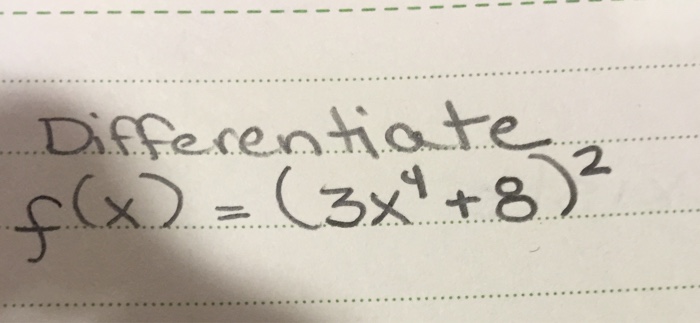 Differentiate
f(x) = (3x⁴+8)²